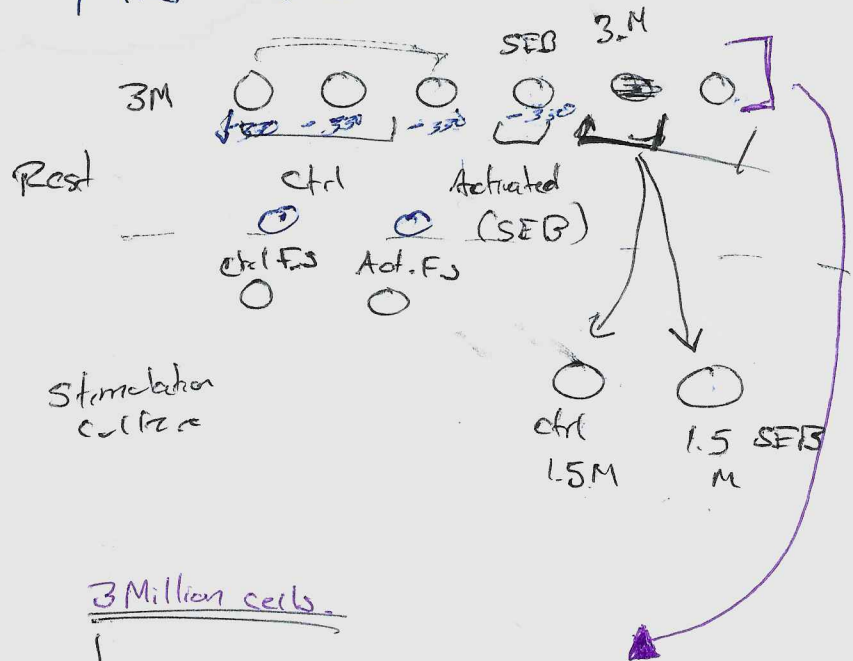 SEB 3.M
3M
-330 -330 -330 -330
Rest Ctrl Activated
(SEB)
Ctrl F.s Act. F.s
Stimulation
culture
ctrl 1.5 SEB
1.5M M
3 Million cells.